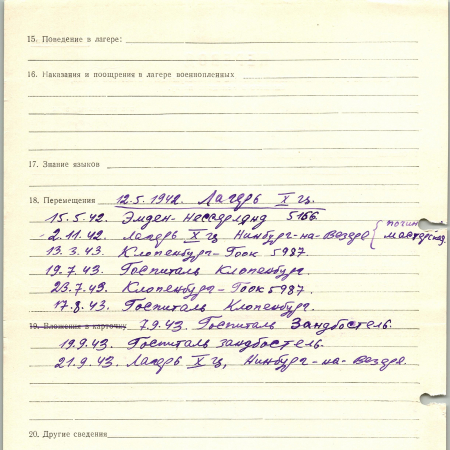 15. Поведение в лагере:
16. Наказания и поощрения в лагере военнопленных
17. Знание языков
18. Перемещения 12.5.1942. Лагерь X ц.
15.5.42. Эмден-Нессерланд 5166.
2.11.42. Лагерь X ц Нинбург-на-Везере
мастерская
13.3.43. Клопенбург-Гоок 5987.
19.7.43. Госпиталь Клопенбург.
23.7.43. Клопенбург-Гоок 5987.
17.8.43. Госпиталь Клопенбург.
19. Вложения в карточку 7.9.43. Госпиталь Зандбостель.
19.9.43. Госпиталь Зандбостель.
21.9.43. Лагерь X ц, Нинбург-на-Везере.
20. Другие сведения